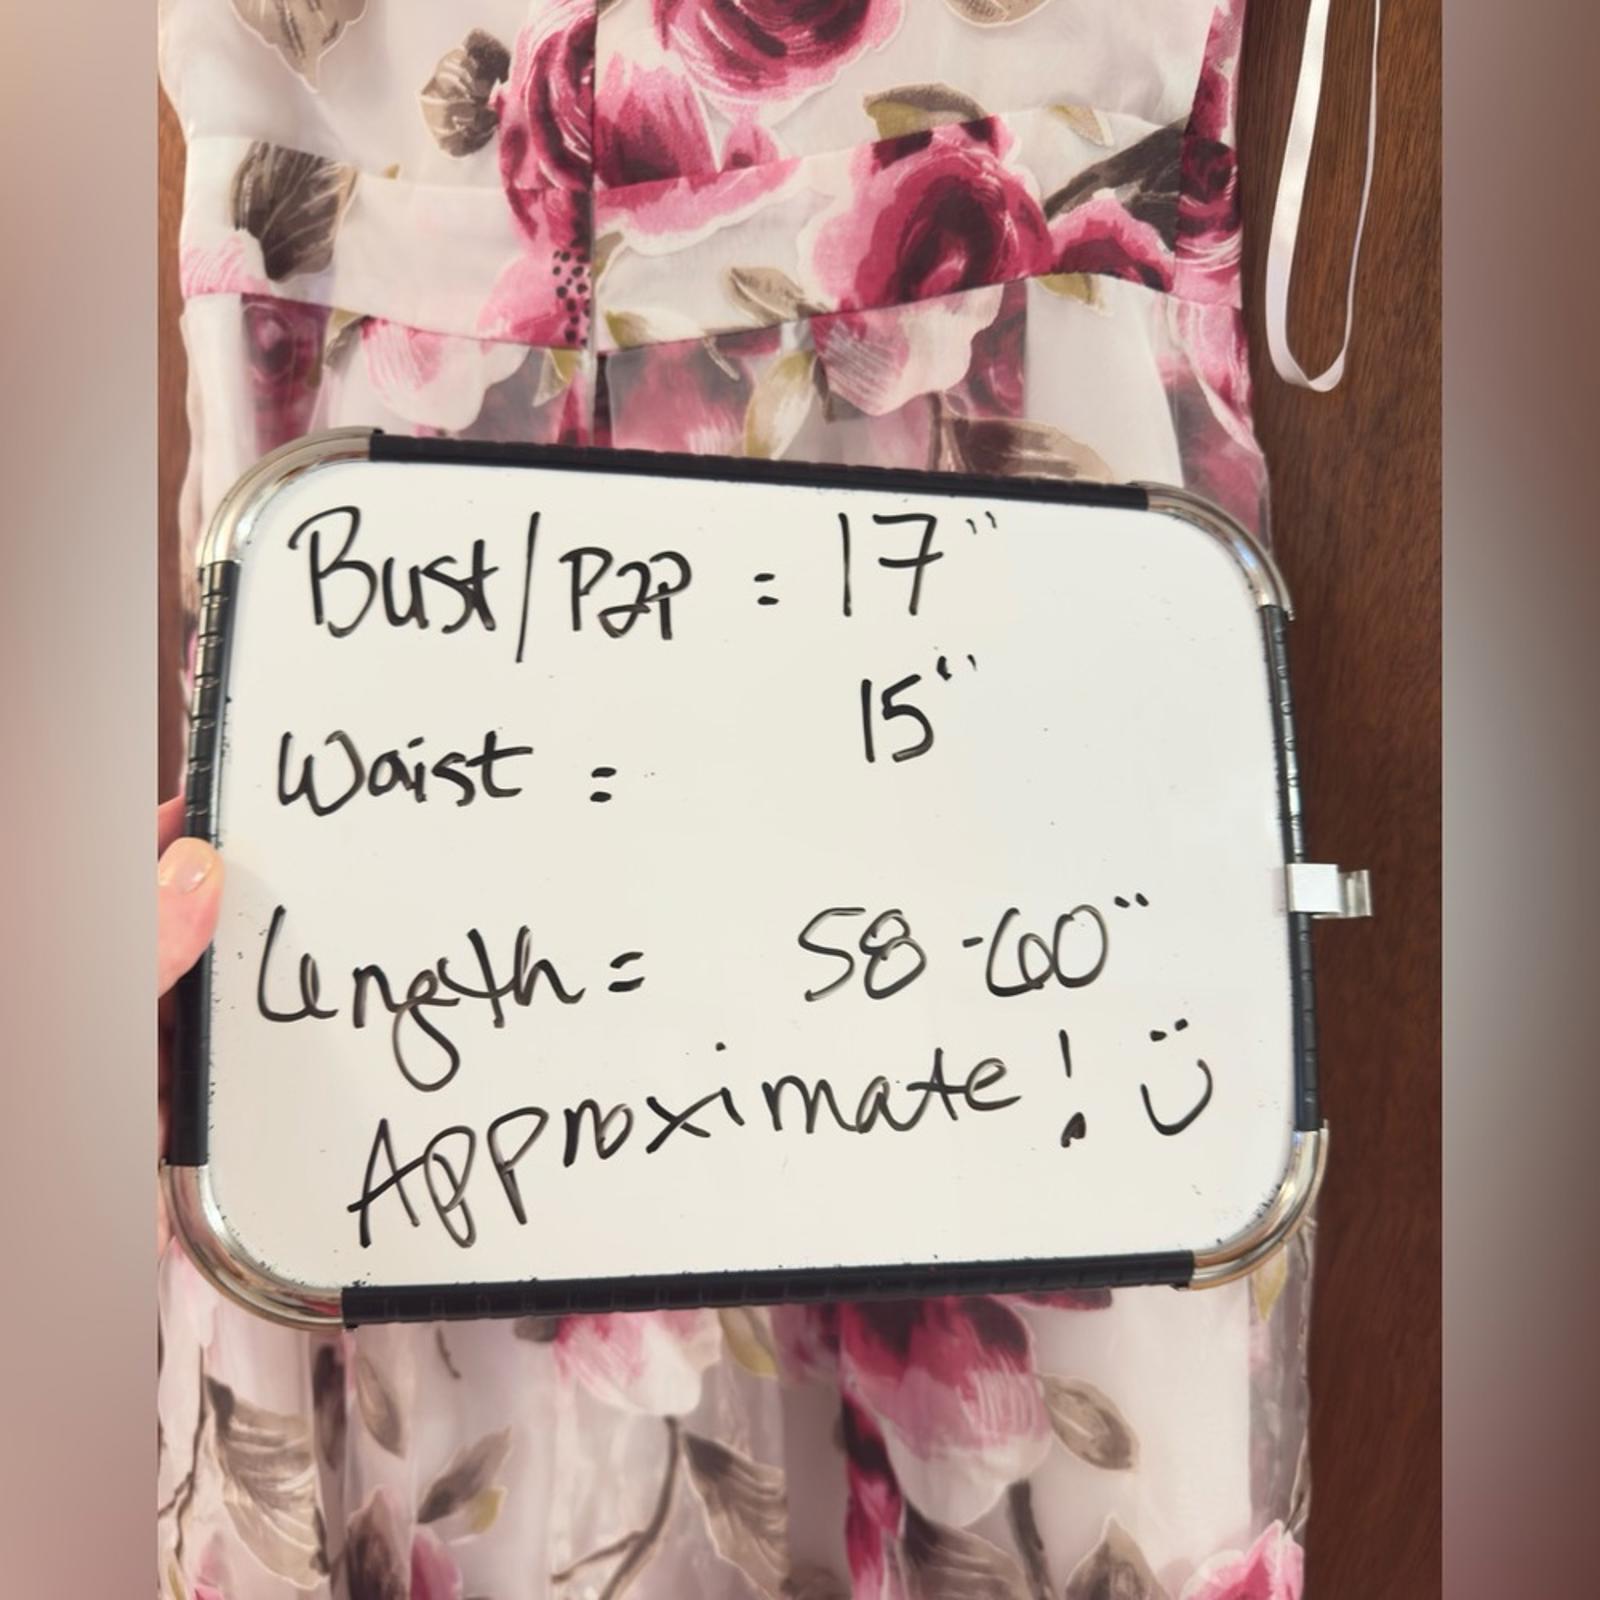 Bust/P2P = 17"
Waist = 15"
Length = 58-60"
Approximate! :)